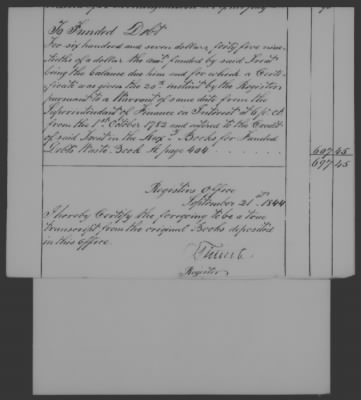 To Funded Debt
For six hundred and seven dollars, forty five nine-
tieths of a dollar the amt. funded by said Jovat
being the balance due him and for which a Certi-
ficate was given the 20th instant by the Register
pursuant to a Warrant of same date from the
Superintendent of Finance on Interest at 6 pr ct
from the 1st October 1782 and entered to the Credit
of said Jovat in the Books for Funded
Debts Waste Book A page 404 . . . . . . . 607.45
677.45
Registers Office
September 21st 1844
I hereby Certify the foregoing to be a true
transcript from the original Books deposited
in this Office.
Register